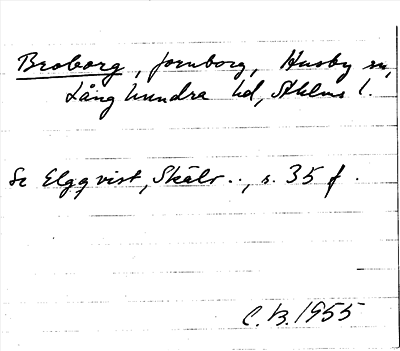 Broborg, fornborg, Husby sn,
Långhundra hd, Sthlms l.
Se Elgqvist, Skälv.., s. 35 f.
C.B. 1955